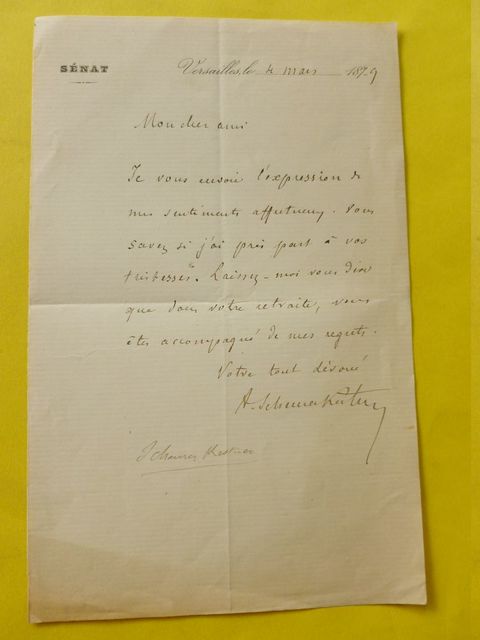 SÉNAT
Versailles, le 4 mars 1879
Mon cher ami
Je vous envoie l'expression de
mes sentiments affectueux. Vous
savez si j'ai pris part à vos
tristesses. Laissez-moi vous dire
que dans votre retraite, vous
êtes accompagné de mes regrets.
Votre tout dévoué
A. Scheurer Kestner
Scheurer Kestner